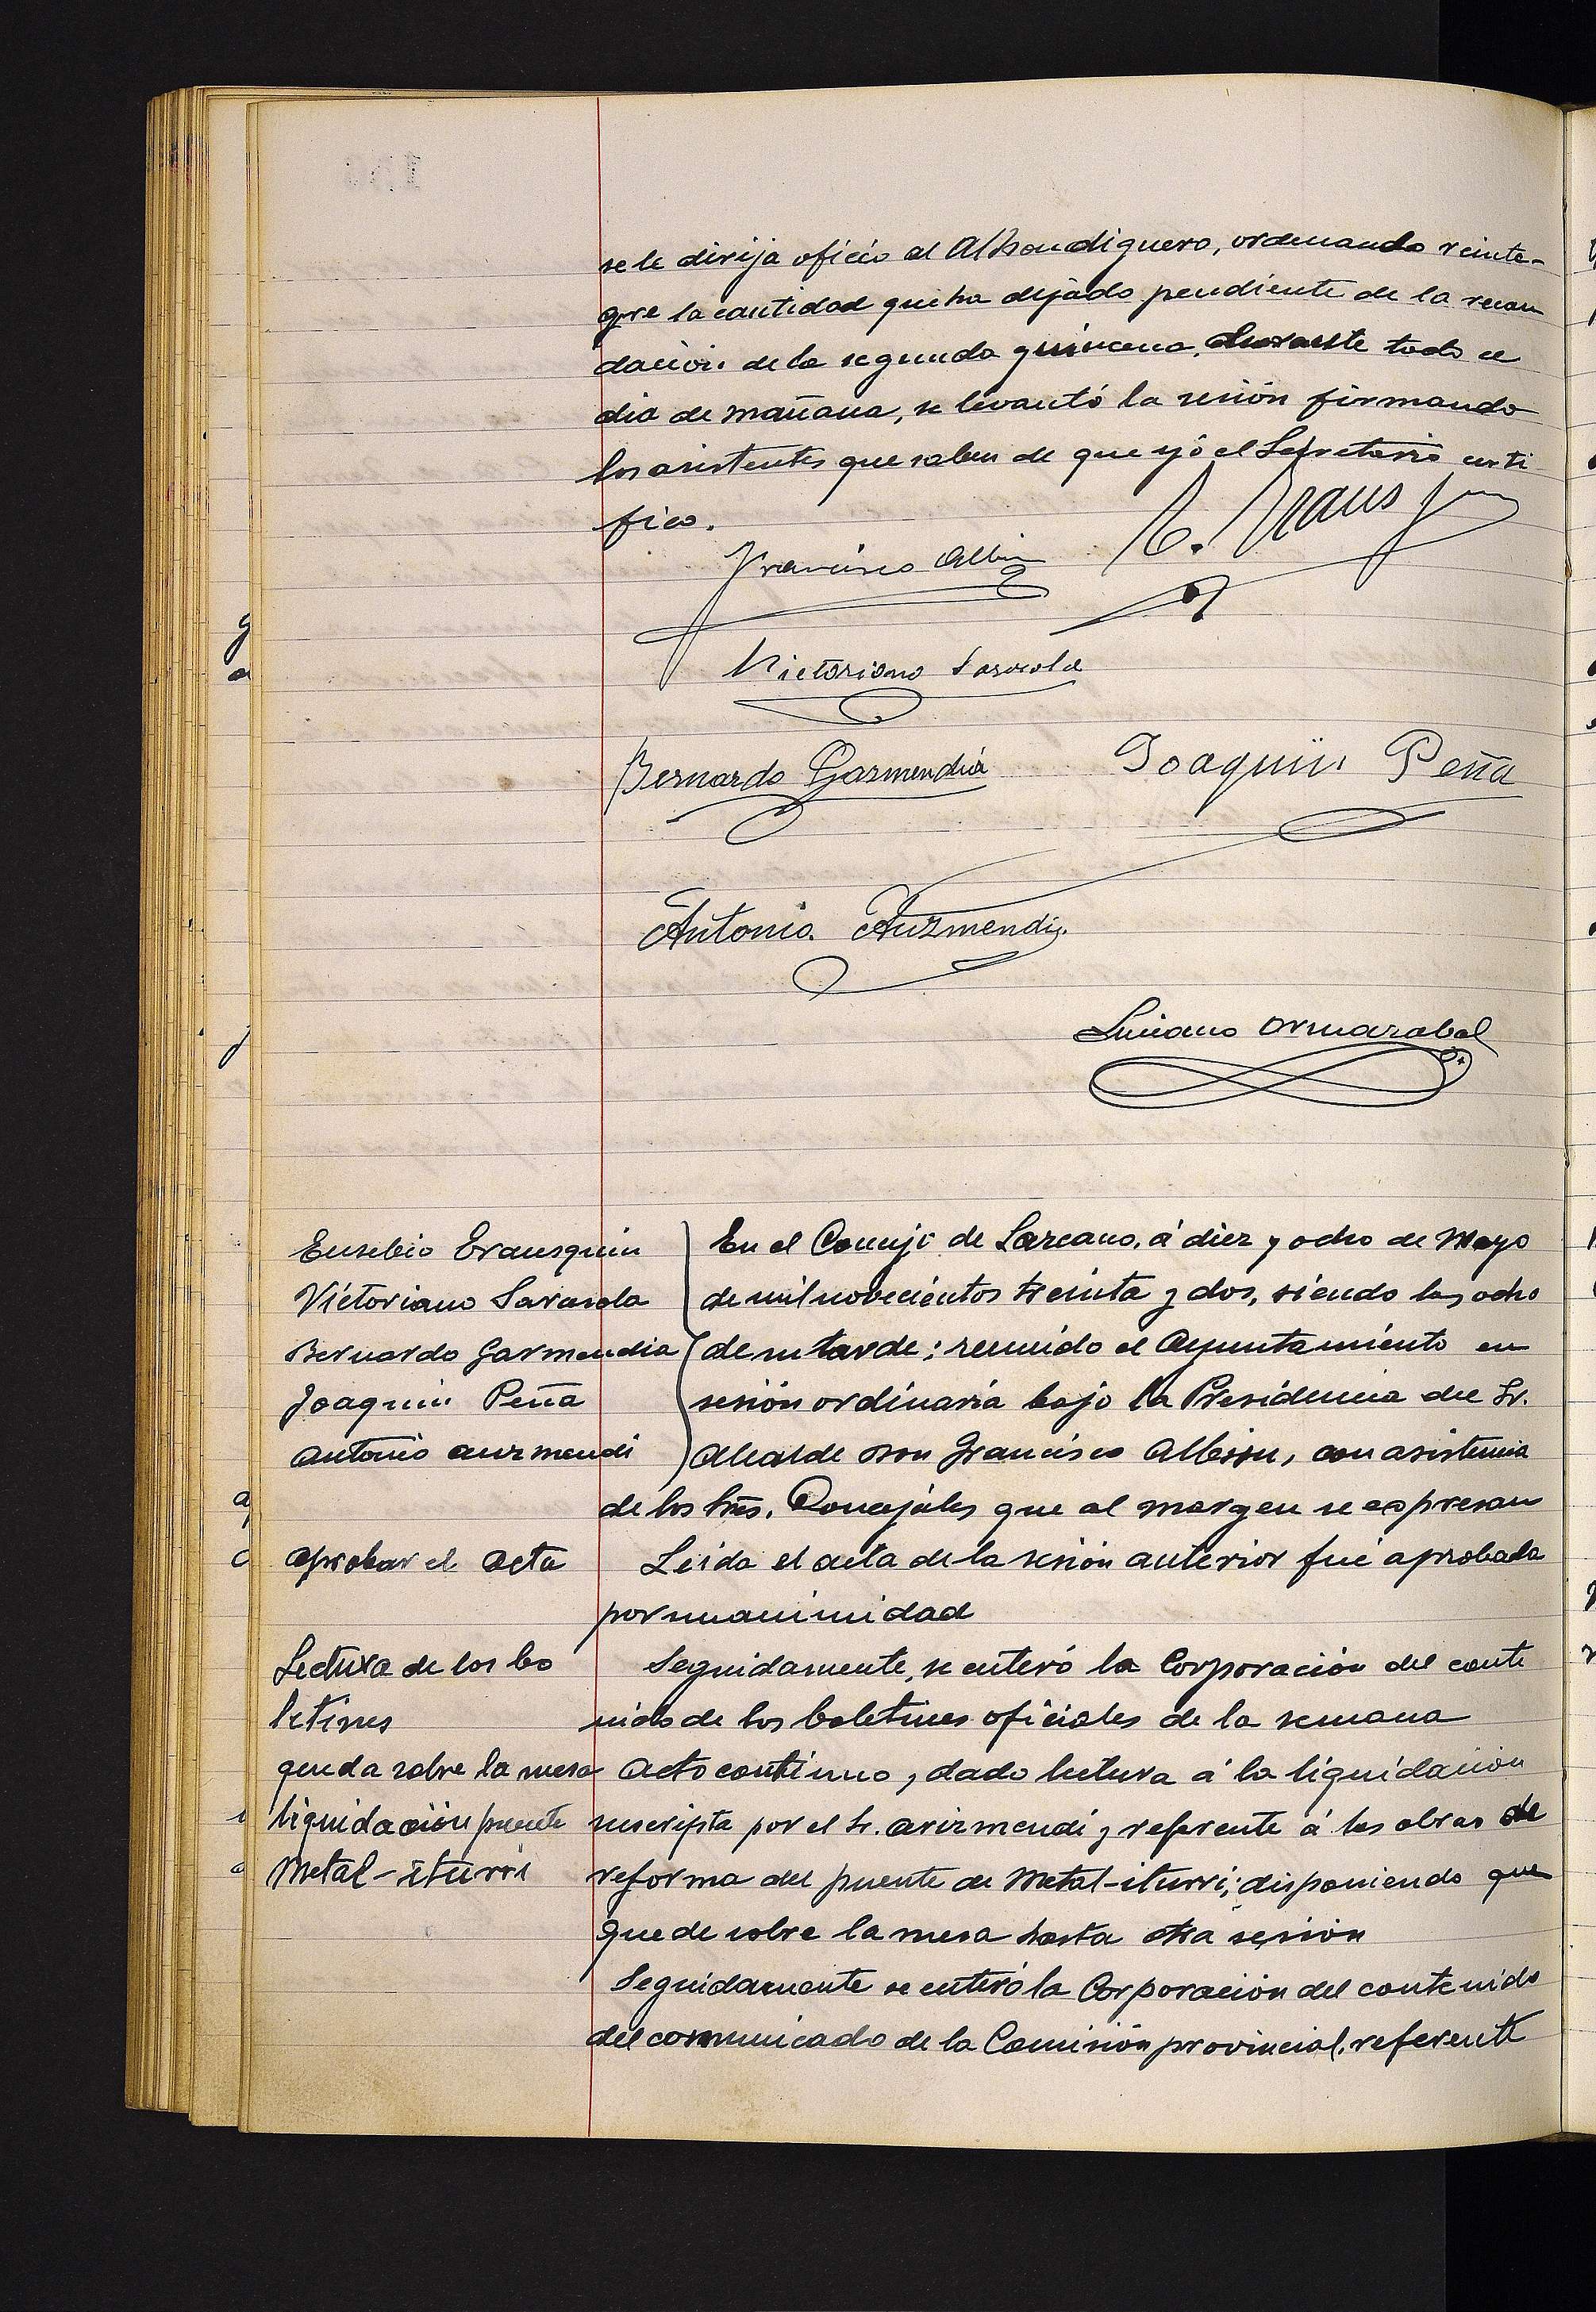 se le dirija oficio al Alhondiguero, ordenando reinte-
gre la cantidad que ha dejado pendiente de la recau
dación de la segunda quincena, durante todo el
dia de mañana, se levantó la sesión firmando
los asistentes que saben de que yó el Secretario certi
fico.
Francisco Albisu
E. Erausquin
Victoriano Sarasola
Bernardo Garmendia
Joaquin Peña
Antonio Auzmendi.
Luciano Ormazabal
Eusebio Erausquin
Victoriano Sarasola
Bernardo Garmendia
Joaquin Peña
Antonio Auzmendi
En el Concejo de Lazcano, á diez y ocho de Mayo
de mil novecientos treinta y dos, siendo las ocho
de su tarde; reunido el Ayuntamiento en
sesión ordinaria bajo la Presidencia del Sr.
Alcalde Don Francisco Albisu, con asistencia
de los Sres. Concejales que al margen se expresan
Aprobar el acta
Leida el acta de la sesión anterior fué aprobada
por unanimidad
Lectura de los bo
letines
Seguidamente, se enteró la Corporación del conte
nido de los boletines oficiales de la semana
queda sobre la mesa
liquidación puente
Metal-iturri
Acto continuo, dado lectura á la liquidación
suscripta por el Sr. Arizmendi y referente á las obras de
reforma del puente de Metal-iturri; disponiendo que
quede sobre la mesa hasta otra sesión
Seguidamente se enteró la Corporación del contenido
del comunicado de la Comisión provincial, referente